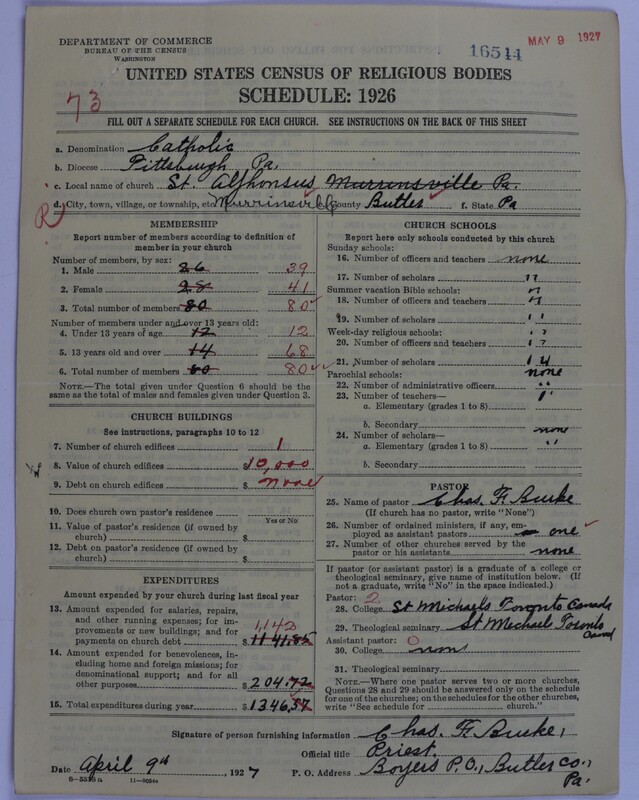 DEPARTMENT OF COMMERCE
BUREAU OF THE CENSUS
WASHINGTON
16544
MAY 9 1927
UNITED STATES CENSUS OF RELIGIOUS BODIES
SCHEDULE: 1926
73
FILL OUT A SEPARATE SCHEDULE FOR EACH CHURCH. SEE INSTRUCTIONS ON THE BACK OF THIS SHEET
a. Denomination Catholic
b. Diocese Pittsburgh, Pa.
c. Local name of church St. Alphonsus Murrinsville Pa.
d. City, town, village, or township, etc. Murrinsville County Butler f. State Pa
R
MEMBERSHIP
Report number of members according to definition of member in your church
Number of members, by sex:
1. Male 26 39
2. Female 28 41
3. Total number of members 80 80
Number of members under and over 13 years old:
4. Under 13 years of age 12 12
5. 13 years old and over 14 68
6. Total number of members 80 80
NOTE.—The total given under Question 6 should be the same as the total of males and females given under Question 3.
CHURCH BUILDINGS
See instructions, paragraphs 10 to 12
7. Number of church edifices 1
8. Value of church edifices $10,000
9. Debt on church edifices $ none
10. Does church own pastor's residence
Yes or No
11. Value of pastor's residence (if owned by church) $
12. Debt on pastor's residence (if owned by church) $
EXPENDITURES
Amount expended by your church during last fiscal year
13. Amount expended for salaries, repairs, and other running expenses; for improvements or new buildings; and for payments on church debt 1,142 $1141,85
14. Amount expended for benevolences, including home and foreign missions; for denominational support; and for all other purposes $204.72
15. Total expenditures during year $1346,57
CHURCH SCHOOLS
Report here only schools conducted by this church
Sunday schools:
16. Number of officers and teachers none
17. Number of scholars "
Summer vacation Bible schools:
18. Number of officers and teachers "
19. Number of scholars "
Week-day religious schools:
20. Number of officers and teachers "
21. Number of scholars
Parochial schools: none
22. Number of administrative officers "
23. Number of teachers— "
a. Elementary (grades 1 to 8)
b. Secondary none
24. Number of scholars—
a. Elementary (grades 1 to 8) "
b. Secondary
PASTOR
25. Name of pastor Chas. F. Burke
(If church has no pastor, write "None")
26. Number of ordained ministers, if any, employed as assistant pastors one
27. Number of other churches served by the pastor or his assistants none
If pastor (or assistant pastor) is a graduate of a college or theological seminary, give name of institution below. (If not a graduate, write "No" in the space indicated.)
Pastor: 2
28. College St Michaels Toronto Canada
29. Theological seminary St Michael Toronto Canad
Assistant pastor: 0
30. College none
31. Theological seminary
NOTE.—Where one pastor serves two or more churches, Questions 28 and 29 should be answered only on the schedule for one of the churches; on the schedules for the other churches, write "See schedule for church."
Signature of person furnishing information Chas. F. Burke,
Official title Priest.
Date April 9th, 1927 P. O. Address Boyers P.O., Butler Co., Pa.